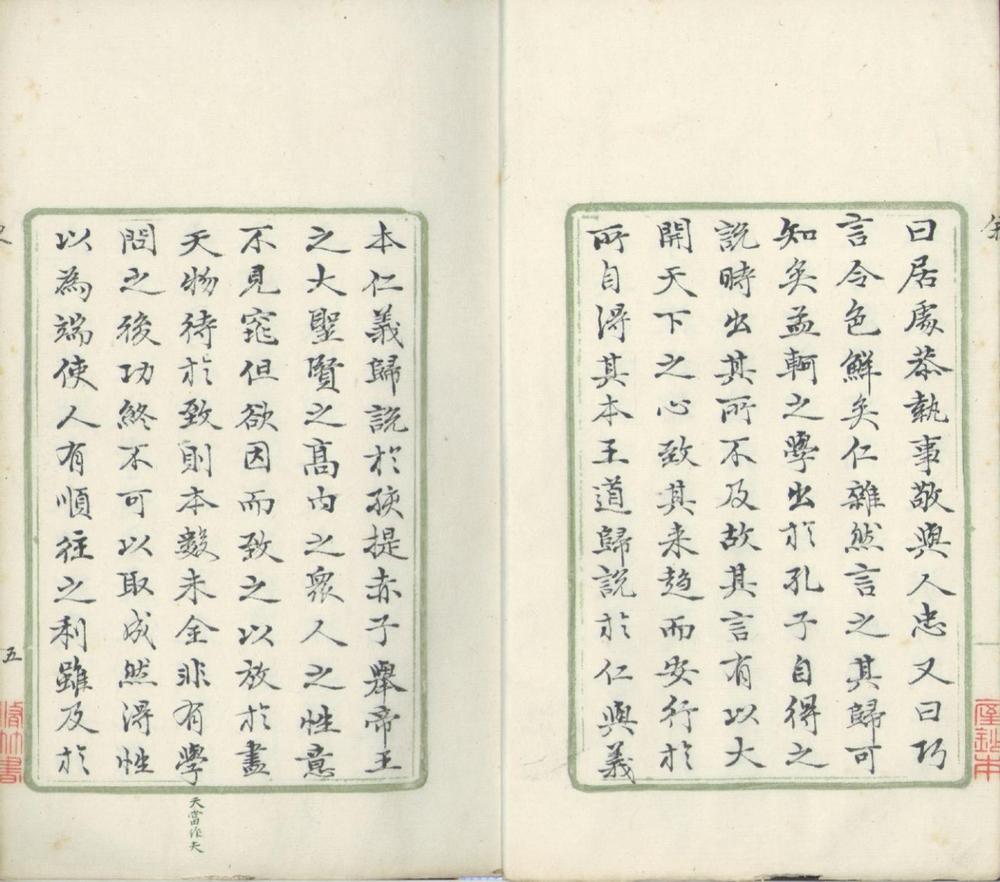 曰居處恭執事敬與人忠又曰巧
言令色鮮矣仁雜然言之其歸可
知矣孟軻之學出於孔子自得之
說時出其所不及故其言有以大
開天下之心致其来趋而安行於
所自得其本王道歸說於仁與義
本仁義歸說於孩提赤子舉帝王
之大聖賢之高内之眾人之性意
不見窕但欲因而致之以放於盡
天物待於致則本數未金非有學
問之後功終不可以取成然得性
以為端使人有順往之利雖及於
天當作夭
五